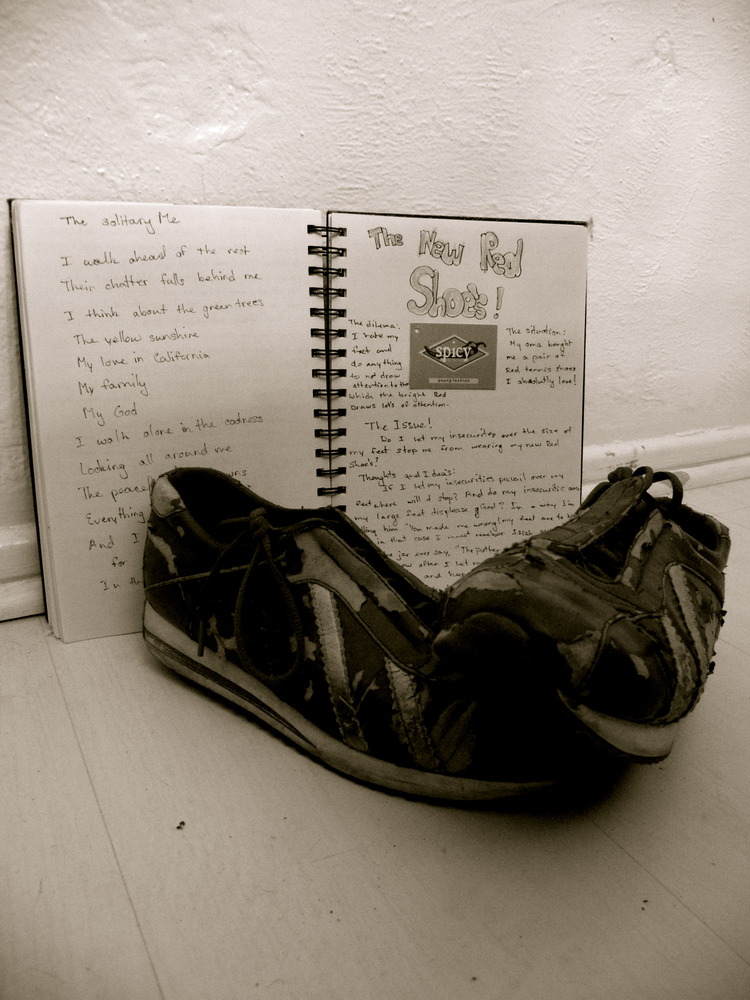 The solitary Me
I walk ahead of the rest
Their chatter falls behind me
I think about the green trees
The yellow sunshine
My love in California
My family
My God
I walk alone in the
Looking all around me
The peaceful
Everything
And I
for
In
The New Red
Shoe's!
The dilema:
I hate my
feet and
do anything
to not draw
attention to the
which the bright Red
Draws lots of attention.
spicy
The situation:
My oma bought
me a pair of
Red tennis shoes
I absolutely love!
The Issue!
Do I let my insecurites over the size of
my feet stop me from wearing my new Red
Shoe's?
Thoughts and Idea's:
If I let my insecurities prevail over my
feet where will it stop? And do my insecurities
my large feet displease god? In a way I'm
him "You made me wrong! my feet are to
in that case I must
ever say, "The
after I let
and